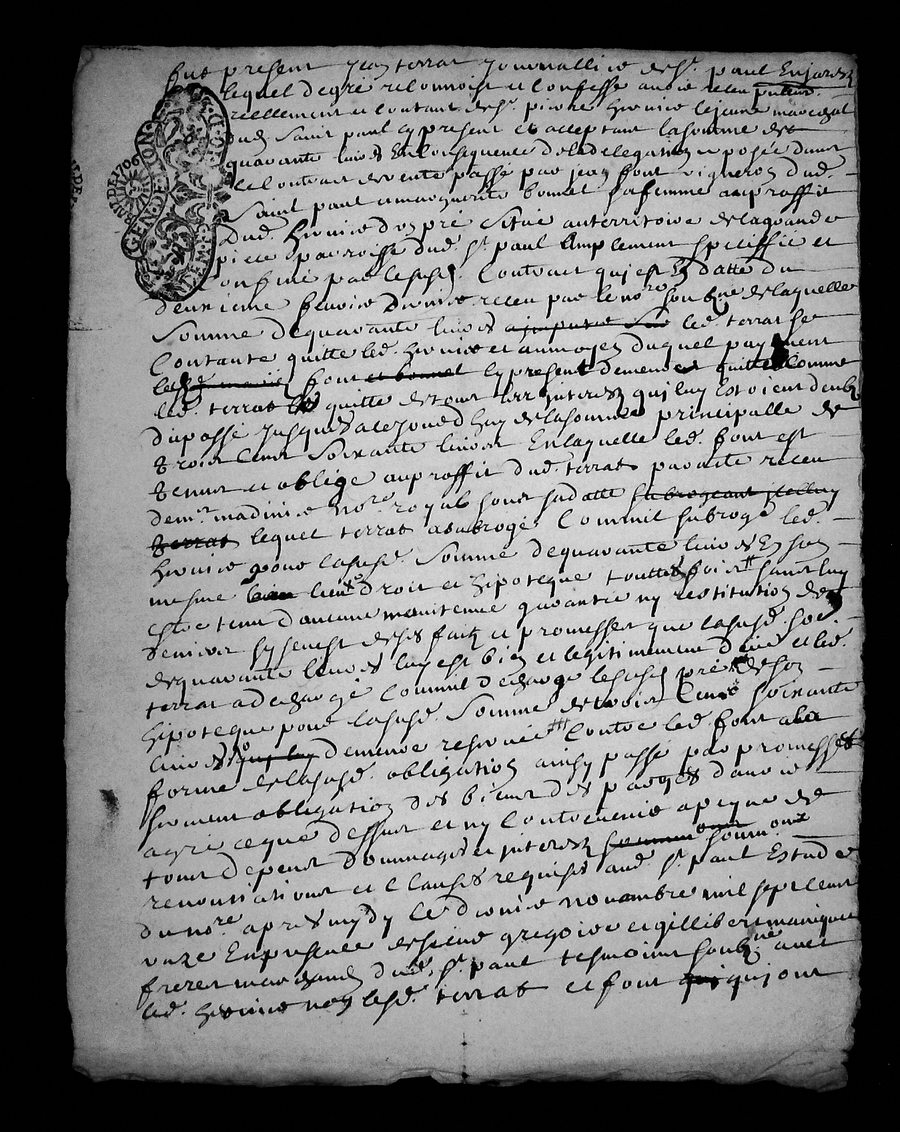 fut present Jean terrat Journallier de St. paul En Jarez
lequel de gré reconnoit et confesse avoir receu
reellement et contant de sr. pierre hervier le jeune marechal
dud. Saint paul cy present et acceptant la somme de
quarante livres En Consequence de la delegation a posée dans
le Contract de vente passé par jean font vigneron dud.
Saint paul a marguerite bonnet sa femme au proffit
dud. hervier d'un pré Situé au territoire de la grande
piece parroisse dud. St. paul amplement speciffié et
Confiné par le susd. Contract qui est En datte du
deuxieme fevrier dernier receu par le nore. soubzne. de laquelle
Somme de quarante livres led. terrat se
Contante quitte led. hervier et au moyen duquel payement
font cy present demeure quitte Comme
led. terrat le quitte de tous les interez qui luy Estoient deubz
du passé Jusques a ce jourd'huy de la somme principalle de
trois Cent soixante livres En laquelle led. font est
tenu et obligé au proffit dud. terrat par acte receu
de mr. madinier nore. royal sous sa datte subrogeant Icelluy
terrat lequel terrat a subrogé Comme il subroge led.
hervier pour la susd. Somme de quarante livres En son
mesme lieu droit et hipoteque touttes fois sans luy
estre tenu d'aucune maintenue garantie ny restitution de
deniers sy ce n'est de ses faitz et promesses que la susd. so.
de quarante livres luy est bien et legitimement deüe et led.
terrat a dechargé Comme il decharge le susd. pré de son
hipoteque pour la susd. Somme de trois Cent soixante
livres demeure reservée Contre led. font a la
forme de la susd. obligation ainsy passé par promesses
serment obligation des biens des parties d'avoir
agré ce que dessus et ny Contrevenir a peyne de
tous depens dommages et interez
renonciations et Clauses requises aud. St. paul Estude
du nore. apres mydy le dernier novembre mil sept cent
unze En presence de sieurs gregoire et gillibert
freres marchands dud. St. paul tesmoins soubznes. avec
led. hervier non lesd. terrat et font qui qui ont
GEN. DE LYON